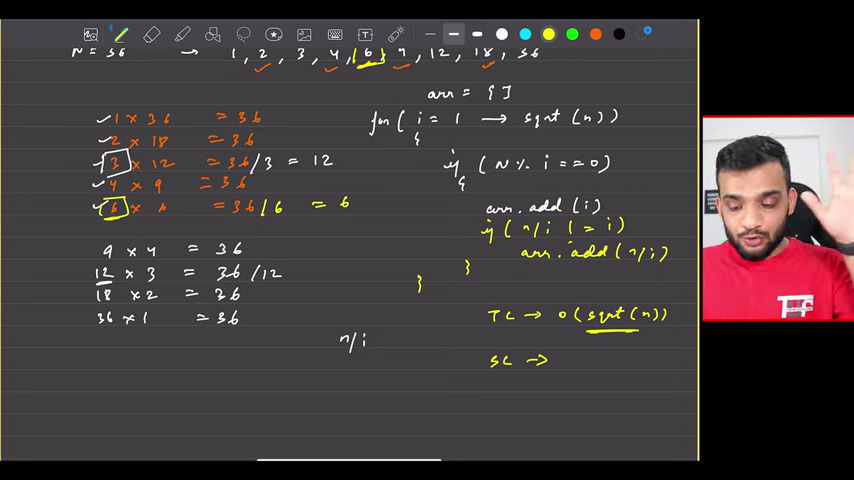 N = 36 → 1, 2, 3, 4, 6, 9, 12, 18, 36
arr = [ ]
1 x 36 = 36
2 x 18 = 36
3 x 12 = 36/3 = 12
4 x 9 = 36
6 x 6 = 36/6 = 6
9 x 4 = 36
12 x 3 = 36/12
18 x 2 = 36
36 x 1 = 36
n/i
for ( i = 1 → sqrt (n))
{
if ( N % i == 0)
{
arr.add (i)
if ( n/i != i)
arr.add (n/i)
}
}
TC → O (sqrt (n))
SC →